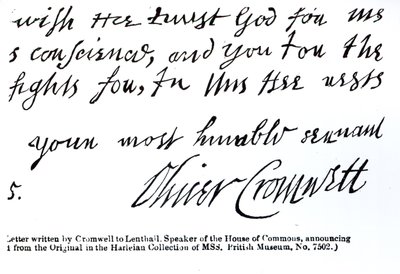 wish Hee trust God for the
s conscience, and you for the
fights for, In this Hee rests
your most humble servant
5. Oliver Cromwell
Letter written by Cromwell to Lenthall, Speaker of the House of Commons, announcing
1 from the Original in the Harleian Collection of MSS. British Museum, No. 7502.)